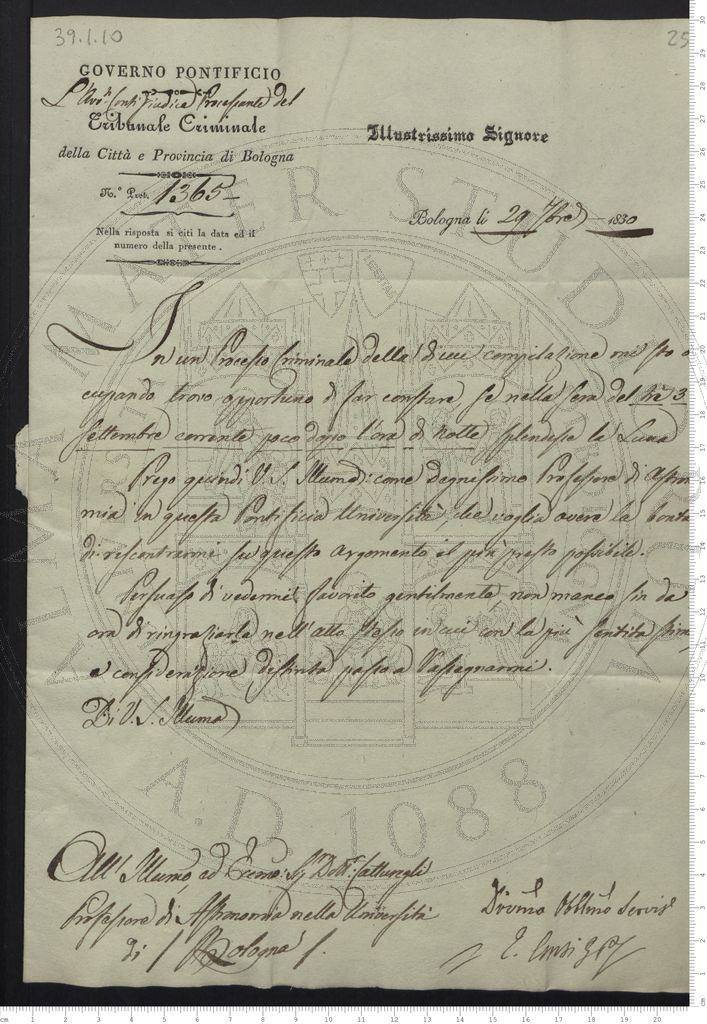 39.1.10
25
GOVERNO PONTIFICIO
L'Avv. Conti Giudice Processante del
Tribunale Criminale
della Città e Provincia di Bologna
N.° Prot. 1365
Nella risposta si citi la data ed il
numero della presente.
Illustrissimo Signore
Bologna li 29 7bre 1830
In un Processo Criminale della di cui compilazione mi sto o
cupando trovo opportuno di far constare se nella sera del tre 3
Settembre corrente poco dopo l'ora di Notte splendesse la Luna
Prego quindi V. S. Illuma: come degnissimo Professore di Astro
mia in questa Pontificia Università che voglia avere la bontà
di riscontrarmi su questo argomento il più presto possibile.
Persuaso di vedermi favorito gentilmente non manco sin da
ora di ringraziarla nell'atto stesso in cui con la più sentita stima
e considerazione distinta passo a rassegnarmi.
Di V. S. Illuma
All' Illumo ed Eccmo: Sig Dottr:
Professore di Astronomia nella Università
di / Bologna /.
Divmo Obblmo Servit
ALMA MATER STUDIORUM
A.D. 1088
LIBERTAS